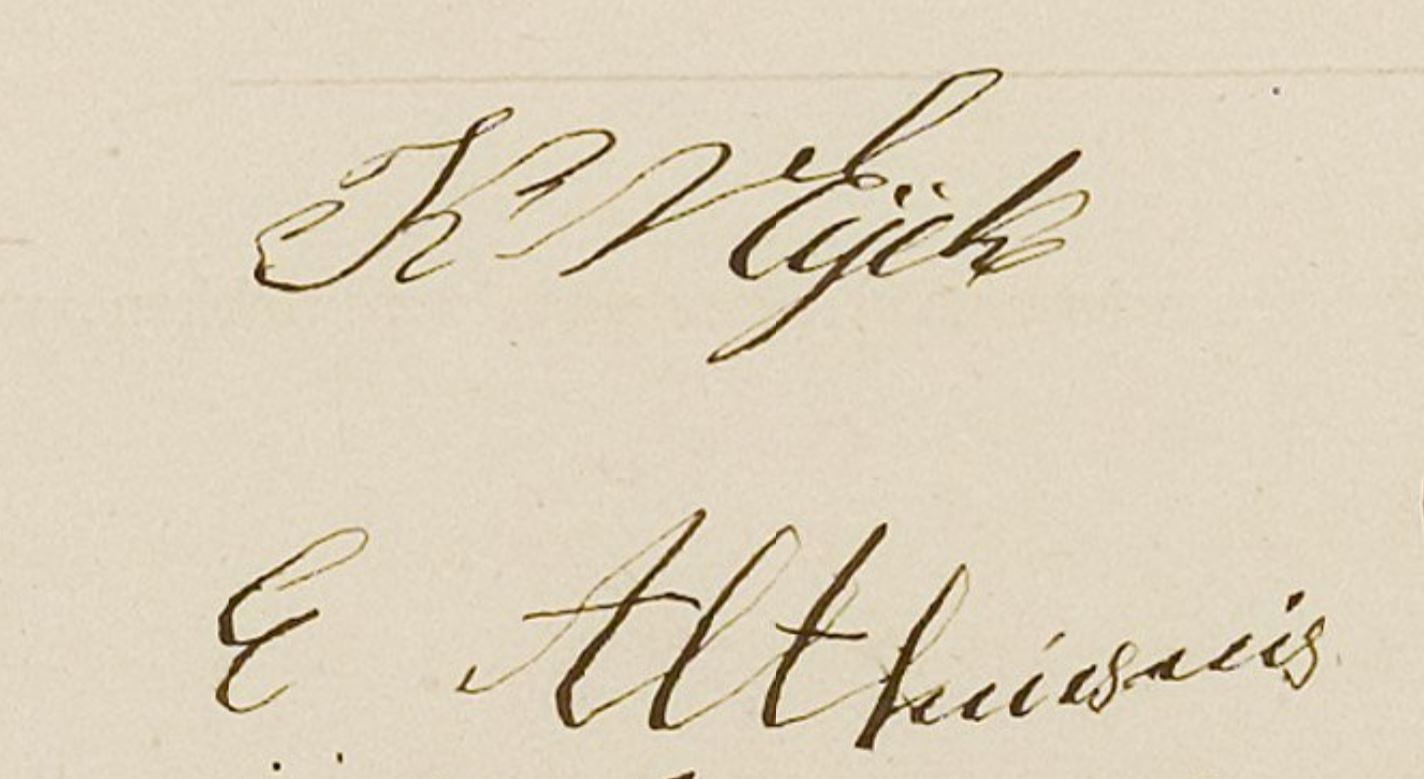 K V Eijck
E Althuisius